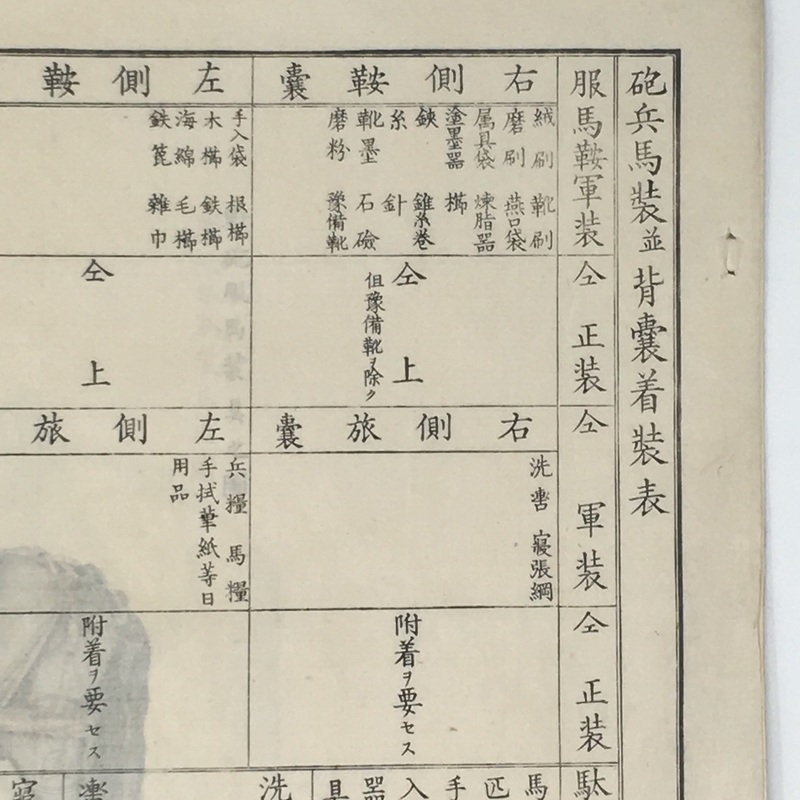 砲兵馬装並背嚢着装表
服馬鞍軍装
仝 正装
仝 軍装
仝 正装
駄
右側鞍嚢
絨刷 靴刷
磨刷 燕口袋
属具袋 煉脂器
塗墨器 櫛
鋏 錐糸巻
糸 針
靴墨 石鹸
磨粉 豫備靴
仝上
但豫備靴ヲ除ク
右側旅嚢
洗 寝張綱
附着ヲ要セス
馬匹手入器具
洗
左側鞍
手入袋 根櫛
木櫛 鉄櫛
海綿 毛櫛
鉄篦 雑巾
仝上
左側旅
兵糧 馬糧
手拭 紙等日
用品
附着ヲ要セス